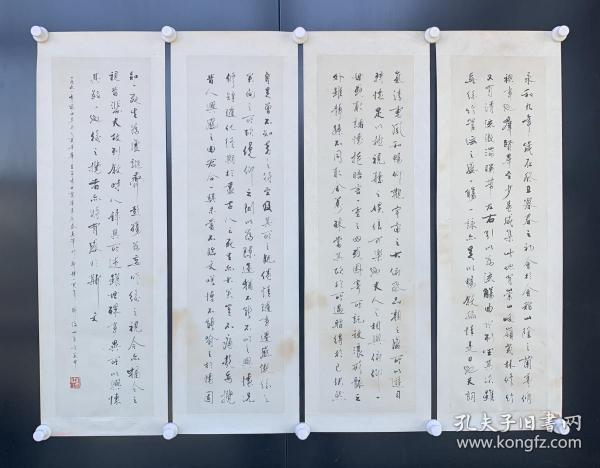 永和九年歲在癸丑暮春之初會於會稽山陰之蘭亭脩
禊事也羣賢畢至少長咸集此地有崇山峻嶺茂林修竹
又有清流激湍映帶左右引以為流觴曲水列坐其次雖
無絲竹管弦之盛一觴一詠亦足以暢敘幽情是日也天朗
氣清惠風和暢仰觀宇宙之大俯察品類之盛所以遊目
騁懷足以極視聽之娛信可樂也夫人之相與俯仰一
世或取諸懷抱晤言一室之內或因寄所託放浪形骸之
外雖靜躁不同取舍萬殊當其欣於所遇暫得於己快然
自足曾不知老之將至及其所之既倦情隨事遷感慨係之
矣向之所欣俛仰之間以為陳迹猶不能不以之興懷況
修短隨化終期於盡古人云死生亦大矣豈不痛哉每攬
昔人興感之由若合一契未嘗不臨文嗟悼不能喻之於懷固
知一死生為虛誕齊彭殤為妄作後之視今亦猶今之
視昔悲夫故列敘時人錄其所述雖世殊事異所以興懷
其致一也後之攬者亦將有感於斯文
孔夫子旧书网
www.kongfz.com